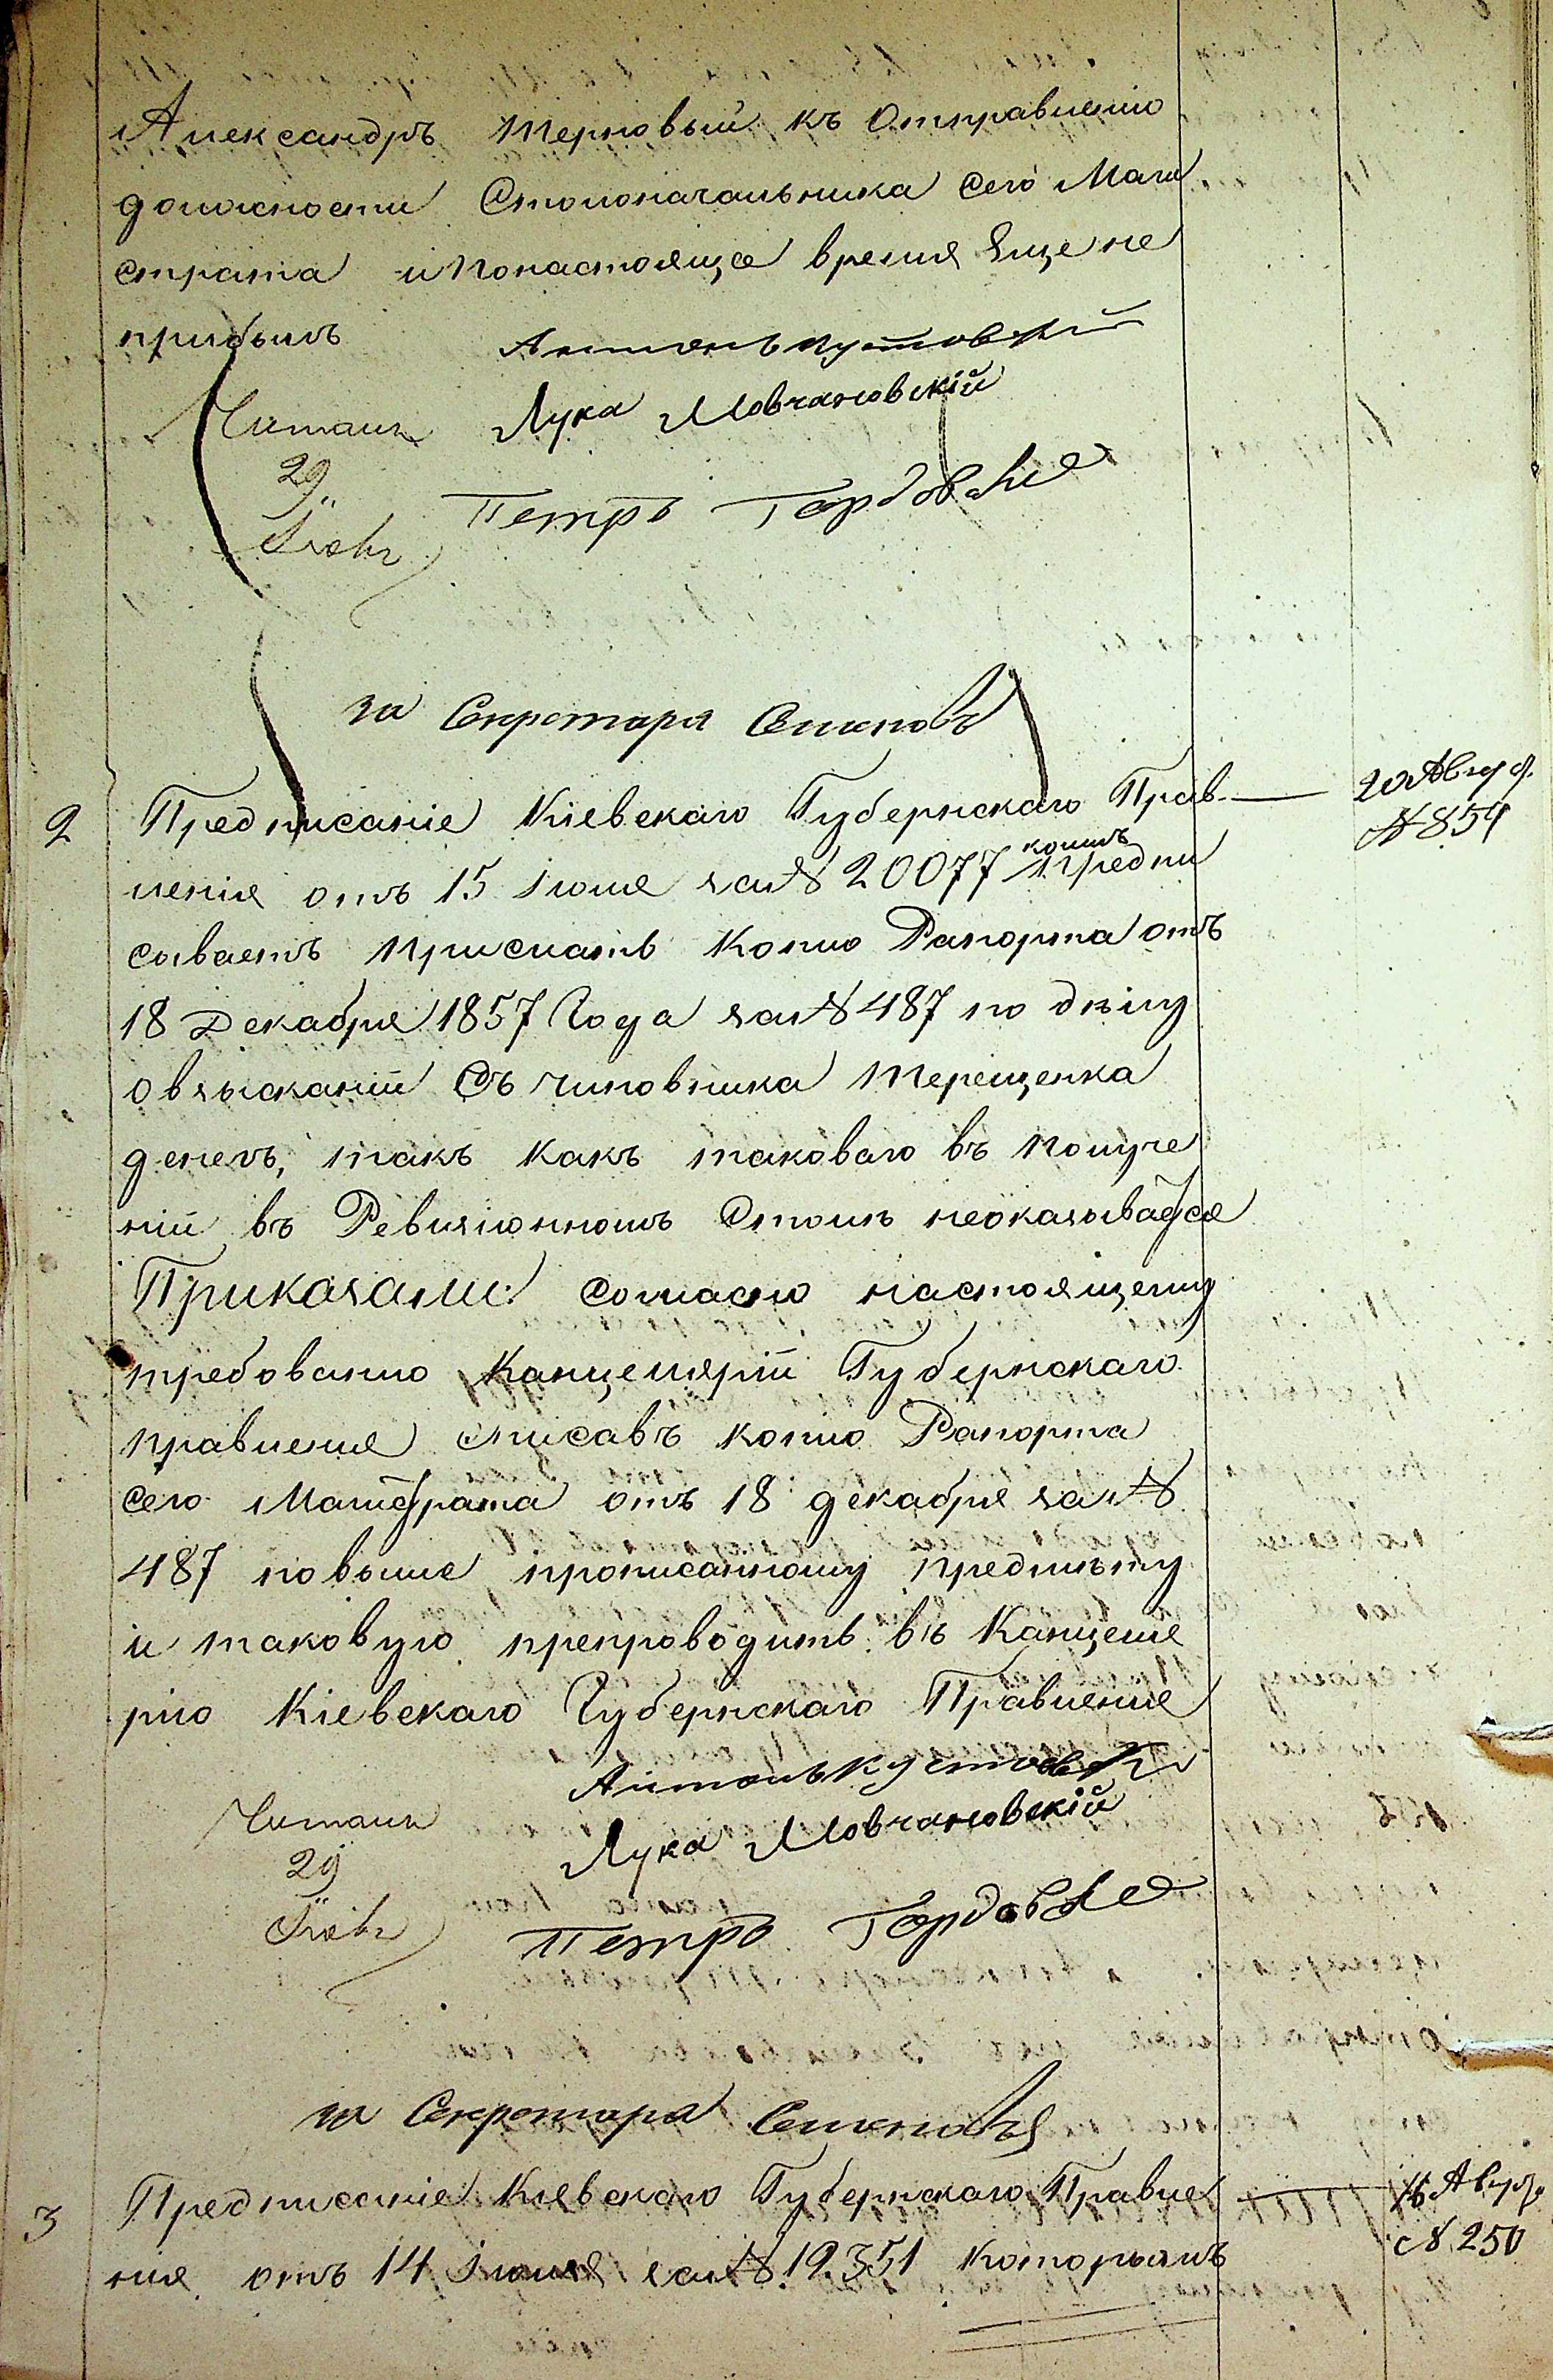 Александръ Терновый къ отправленію
должности Столоначальника сего Маги
страта и понастояще время Еще не
прибылъ
Антонъ Кустовскій
Лука Мовчановскій
Читалъ
29
Петръ Гордовскій
за Секретаря
2 Предписаніе Кіевскаго Губернскаго Прав
20 Август.
№ 854
ленія отъ 15 Іюля за № 20077 коимъ предпи
сываетъ прислать копію Рапорта отъ
18 Декабря 1857 Года за № 487 по дѣлу
о взысканіи Съ чиновника Терещенка
денегъ, такъ какъ таковаго въ получе
ніи въ Ревизіонномъ Столѣ неоказывается
Приказали: согласно настоящему
требованію Канцеляріи Губернскаго
правленія списавъ копію Рапорта
сего Магистрата отъ 18 декабря за №
487 повыше прописанному предмѣту
и таковую препроводить въ Канцеля
рію Кіевскаго Губернскаго Правленія
Антонъ Кустовскій
Лука Мовчановскій
Читалъ
29
Петръ Гордовскій
за Секретаря
3 Предписаніе Кіевскаго Губернскаго Правле
16 Август.
№ 250
нія отъ 14 Іюля за № 19.351 которымъ